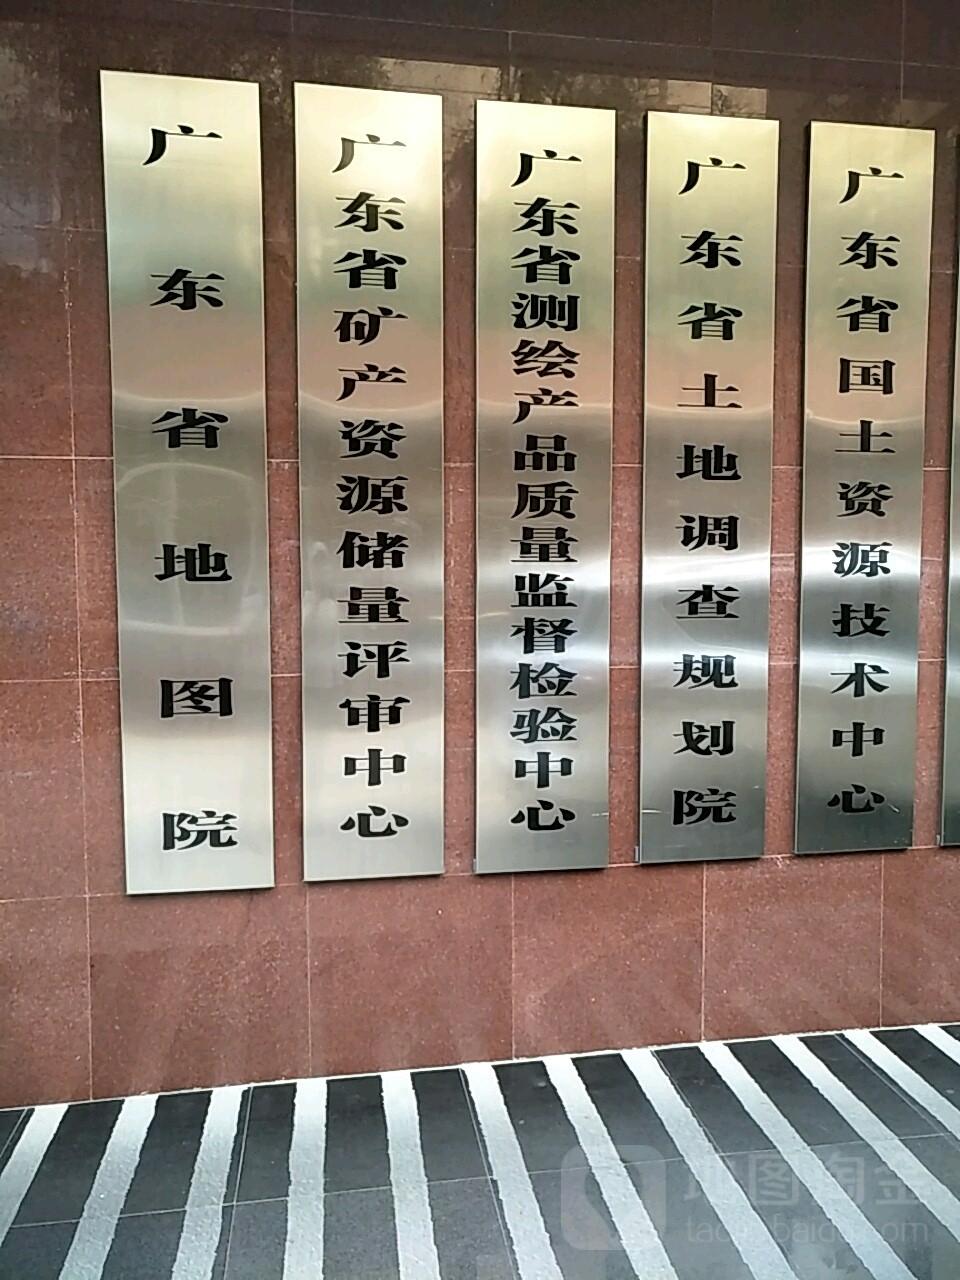 广东省地图院
广东省矿产资源储量评审中心
广东省测绘产品质量监督检验中心
广东省土地调查规划院
广东省国土资源技术中心
地图淘金